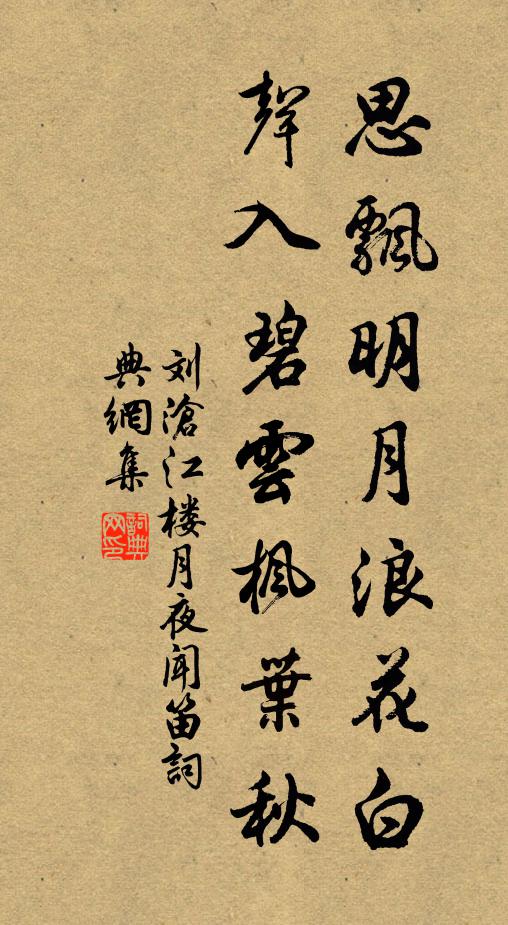 思飄明月浪花白
聲入碧雲楓葉秋
刘滄江楼月夜闻笛詞
典網集
詞典
网印